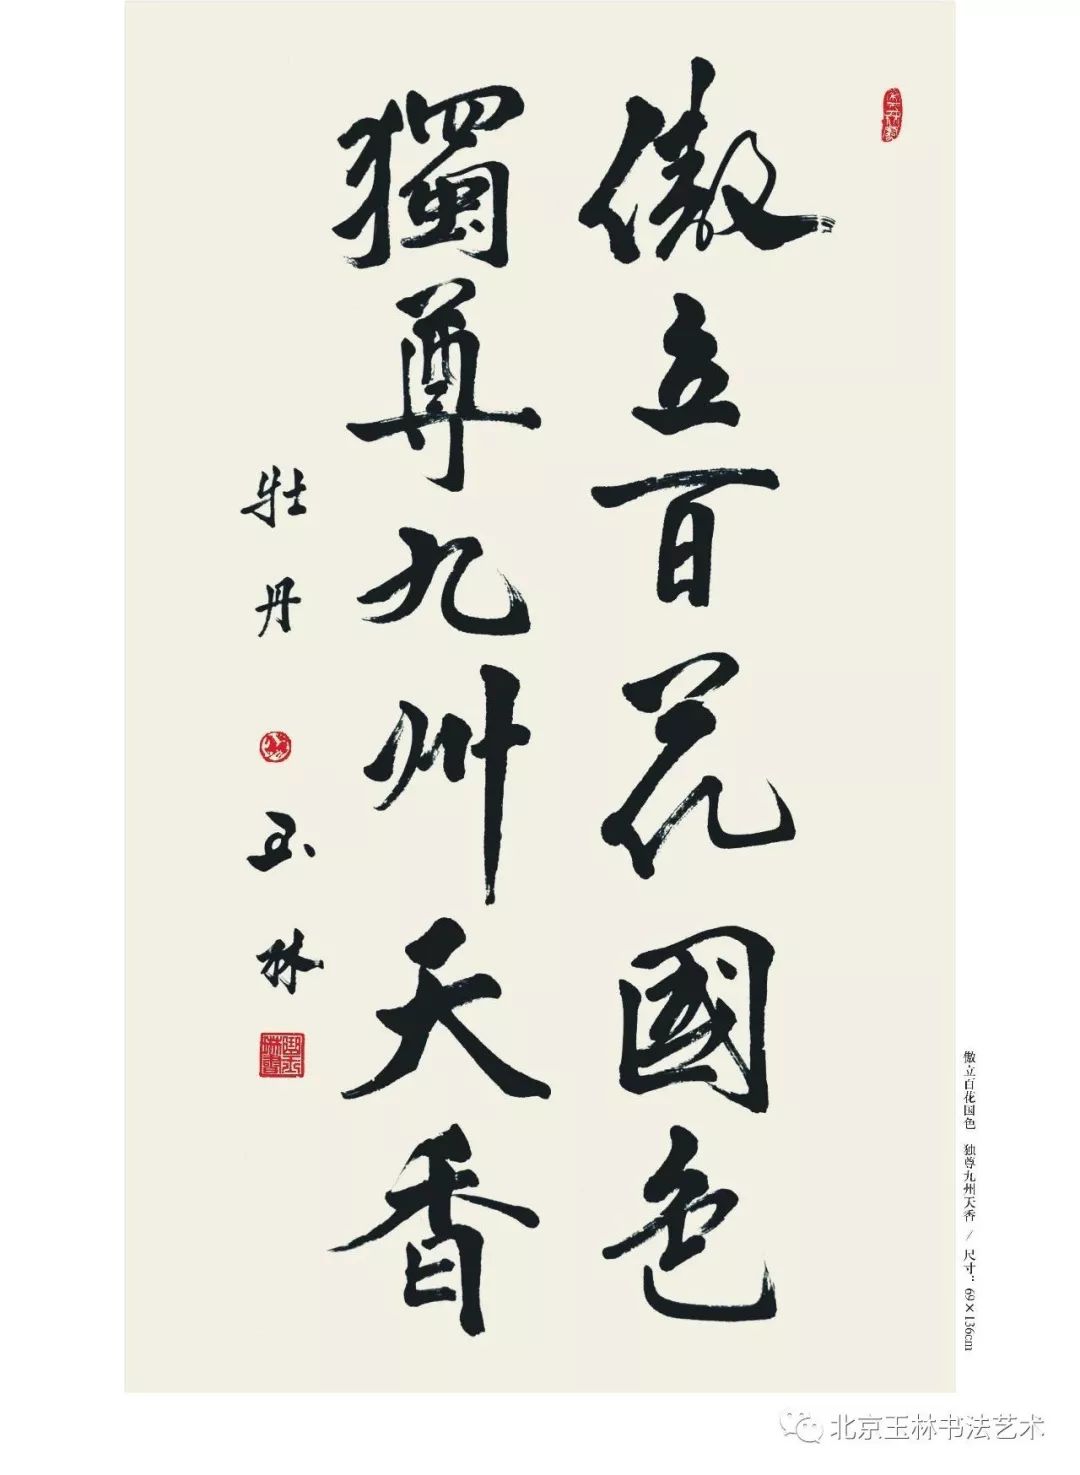 傲立百花國色
獨尊九州天香
牡丹 玉林
傲立百花国色 独尊九州天香 / 尺寸：69×136cm
北京玉林书法艺术